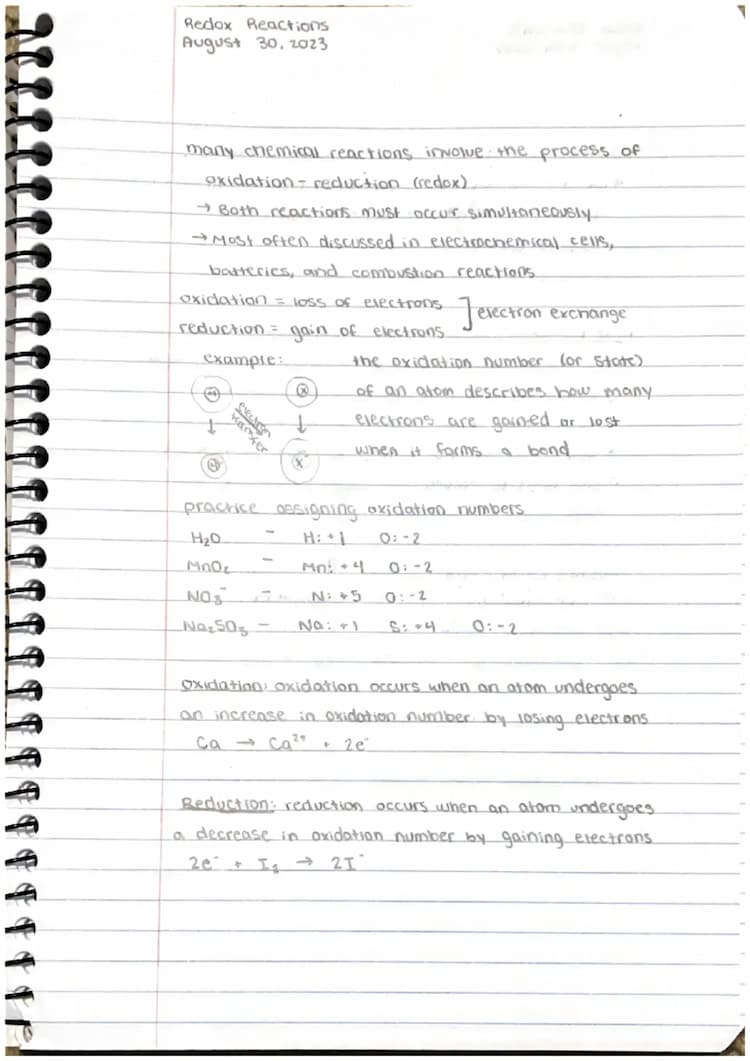 Redox Reactions
August 30, 2023
many chemical reactions involve the process of
oxidation - reduction (redox)
→ Both reactions must occur simultaneously
→ Most often discussed in electrochemical cells,
batteries, and combustion reactions
oxidation = loss of electrons
reduction = gain of electrons
] electron exchange
example:
electron
transfer
X⁻
the oxidation number (or state)
of an atom describes how many
electrons are gained or lost
when it forms a bond
practice assigning oxidation numbers
H₂O - H: +1 O: -2
MnO₂ - Mn: +4 O: -2
NO₃⁻ - N: +5 O: -2
Na₂SO₃ - Na: +1 S: +4 O: -2
Oxidation: oxidation occurs when an atom undergoes
an increase in oxidation number by losing electrons
Ca → Ca²⁺ + 2e⁻
Reduction: reduction occurs when an atom undergoes
a decrease in oxidation number by gaining electrons
2e⁻ + I₂ → 2I⁻